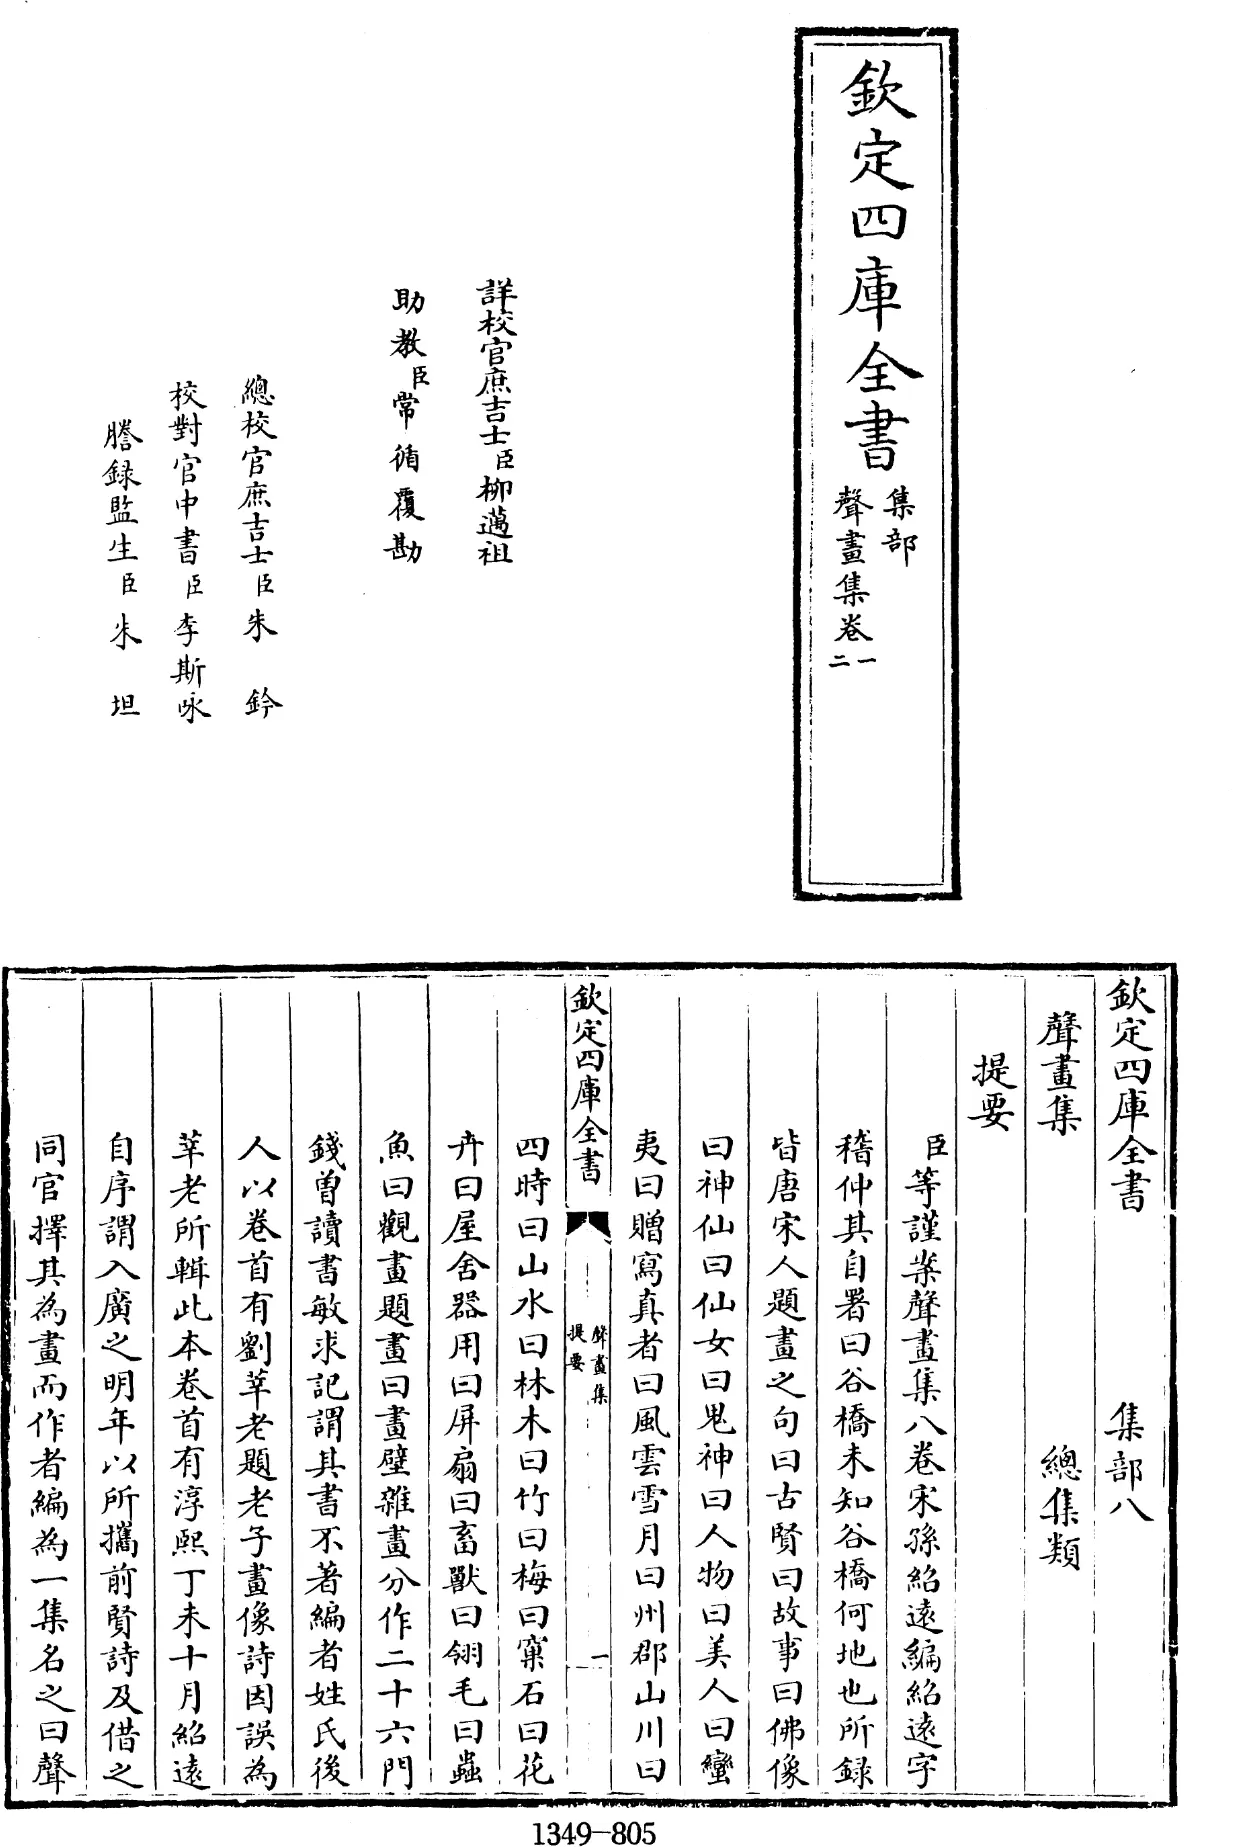 欽定四庫全書
集部
聲畫集卷一二
詳校官庶吉士臣柳邁祖
助教臣常循覆勘
總校官庶吉士臣朱鈐
校對官中書臣李斯咏
謄録監生臣朱坦
欽定四庫全書 集部八
聲畫集 總集類
提要
臣等謹案聲畫集八卷宋孫紹遠編紹遠字
稽仲其自署曰谷橋未知谷橋何地也所録
皆唐宋人題畫之句曰古賢曰故事曰佛像
曰神仙曰仙女曰鬼神曰人物曰美人曰蠻
夷曰贈寫真者曰風雲雪月曰州郡山川曰
欽定四庫全書
聲畫集
提要
一
四時曰山水曰林木曰竹曰梅曰窠石曰花
卉曰屋舍器用曰屏扇曰畜獸曰翎毛曰蟲
魚曰觀畫題畫曰畫壁雜畫分作二十六門
錢曽讀書敏求記謂其書不著編者姓氏後
人以卷首有劉莘老題老子畫像詩因誤為
莘老所輯此本卷首有淳熙丁未十月紹遠
自序謂入廣之明年以所攜前賢詩及借之
同官擇其為畫而作者編為一集名之曰聲
1349-805